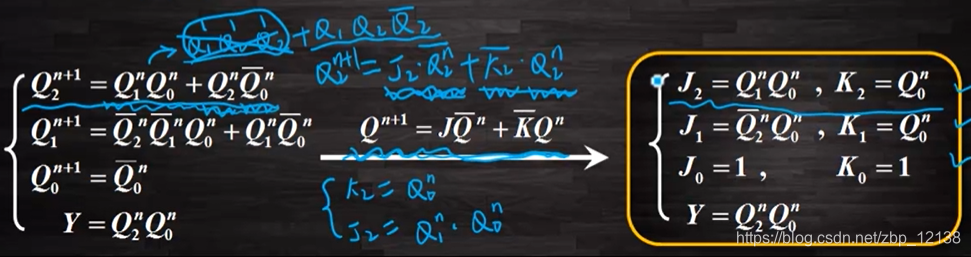 + Q₁ Q₂ Q̅₂
Q₂ⁿ⁺¹ = J₂·Q̅₂ⁿ + K̅₂·Q₂ⁿ
Q₂ⁿ⁺¹ = Q₁ⁿQ₀ⁿ + Q₂ⁿQ̅₀ⁿ
Q₁ⁿ⁺¹ = Q̅₂ⁿQ̅₁ⁿQ₀ⁿ + Q₁ⁿQ̅₀ⁿ
Q₀ⁿ⁺¹ = Q̅₀ⁿ
Y = Q₂ⁿQ₀ⁿ
Qⁿ⁺¹ = JQ̅ⁿ + K̅Qⁿ
K₂ = Q₀ⁿ
J₂ = Q₁ⁿ · Q₀ⁿ
J₂ = Q₁ⁿQ₀ⁿ , K₂ = Q₀ⁿ
J₁ = Q̅₂ⁿQ₀ⁿ , K₁ = Q₀ⁿ
J₀ = 1 , K₀ = 1
Y = Q₂ⁿQ₀ⁿ
https://blog.csdn.net/zbp_12138